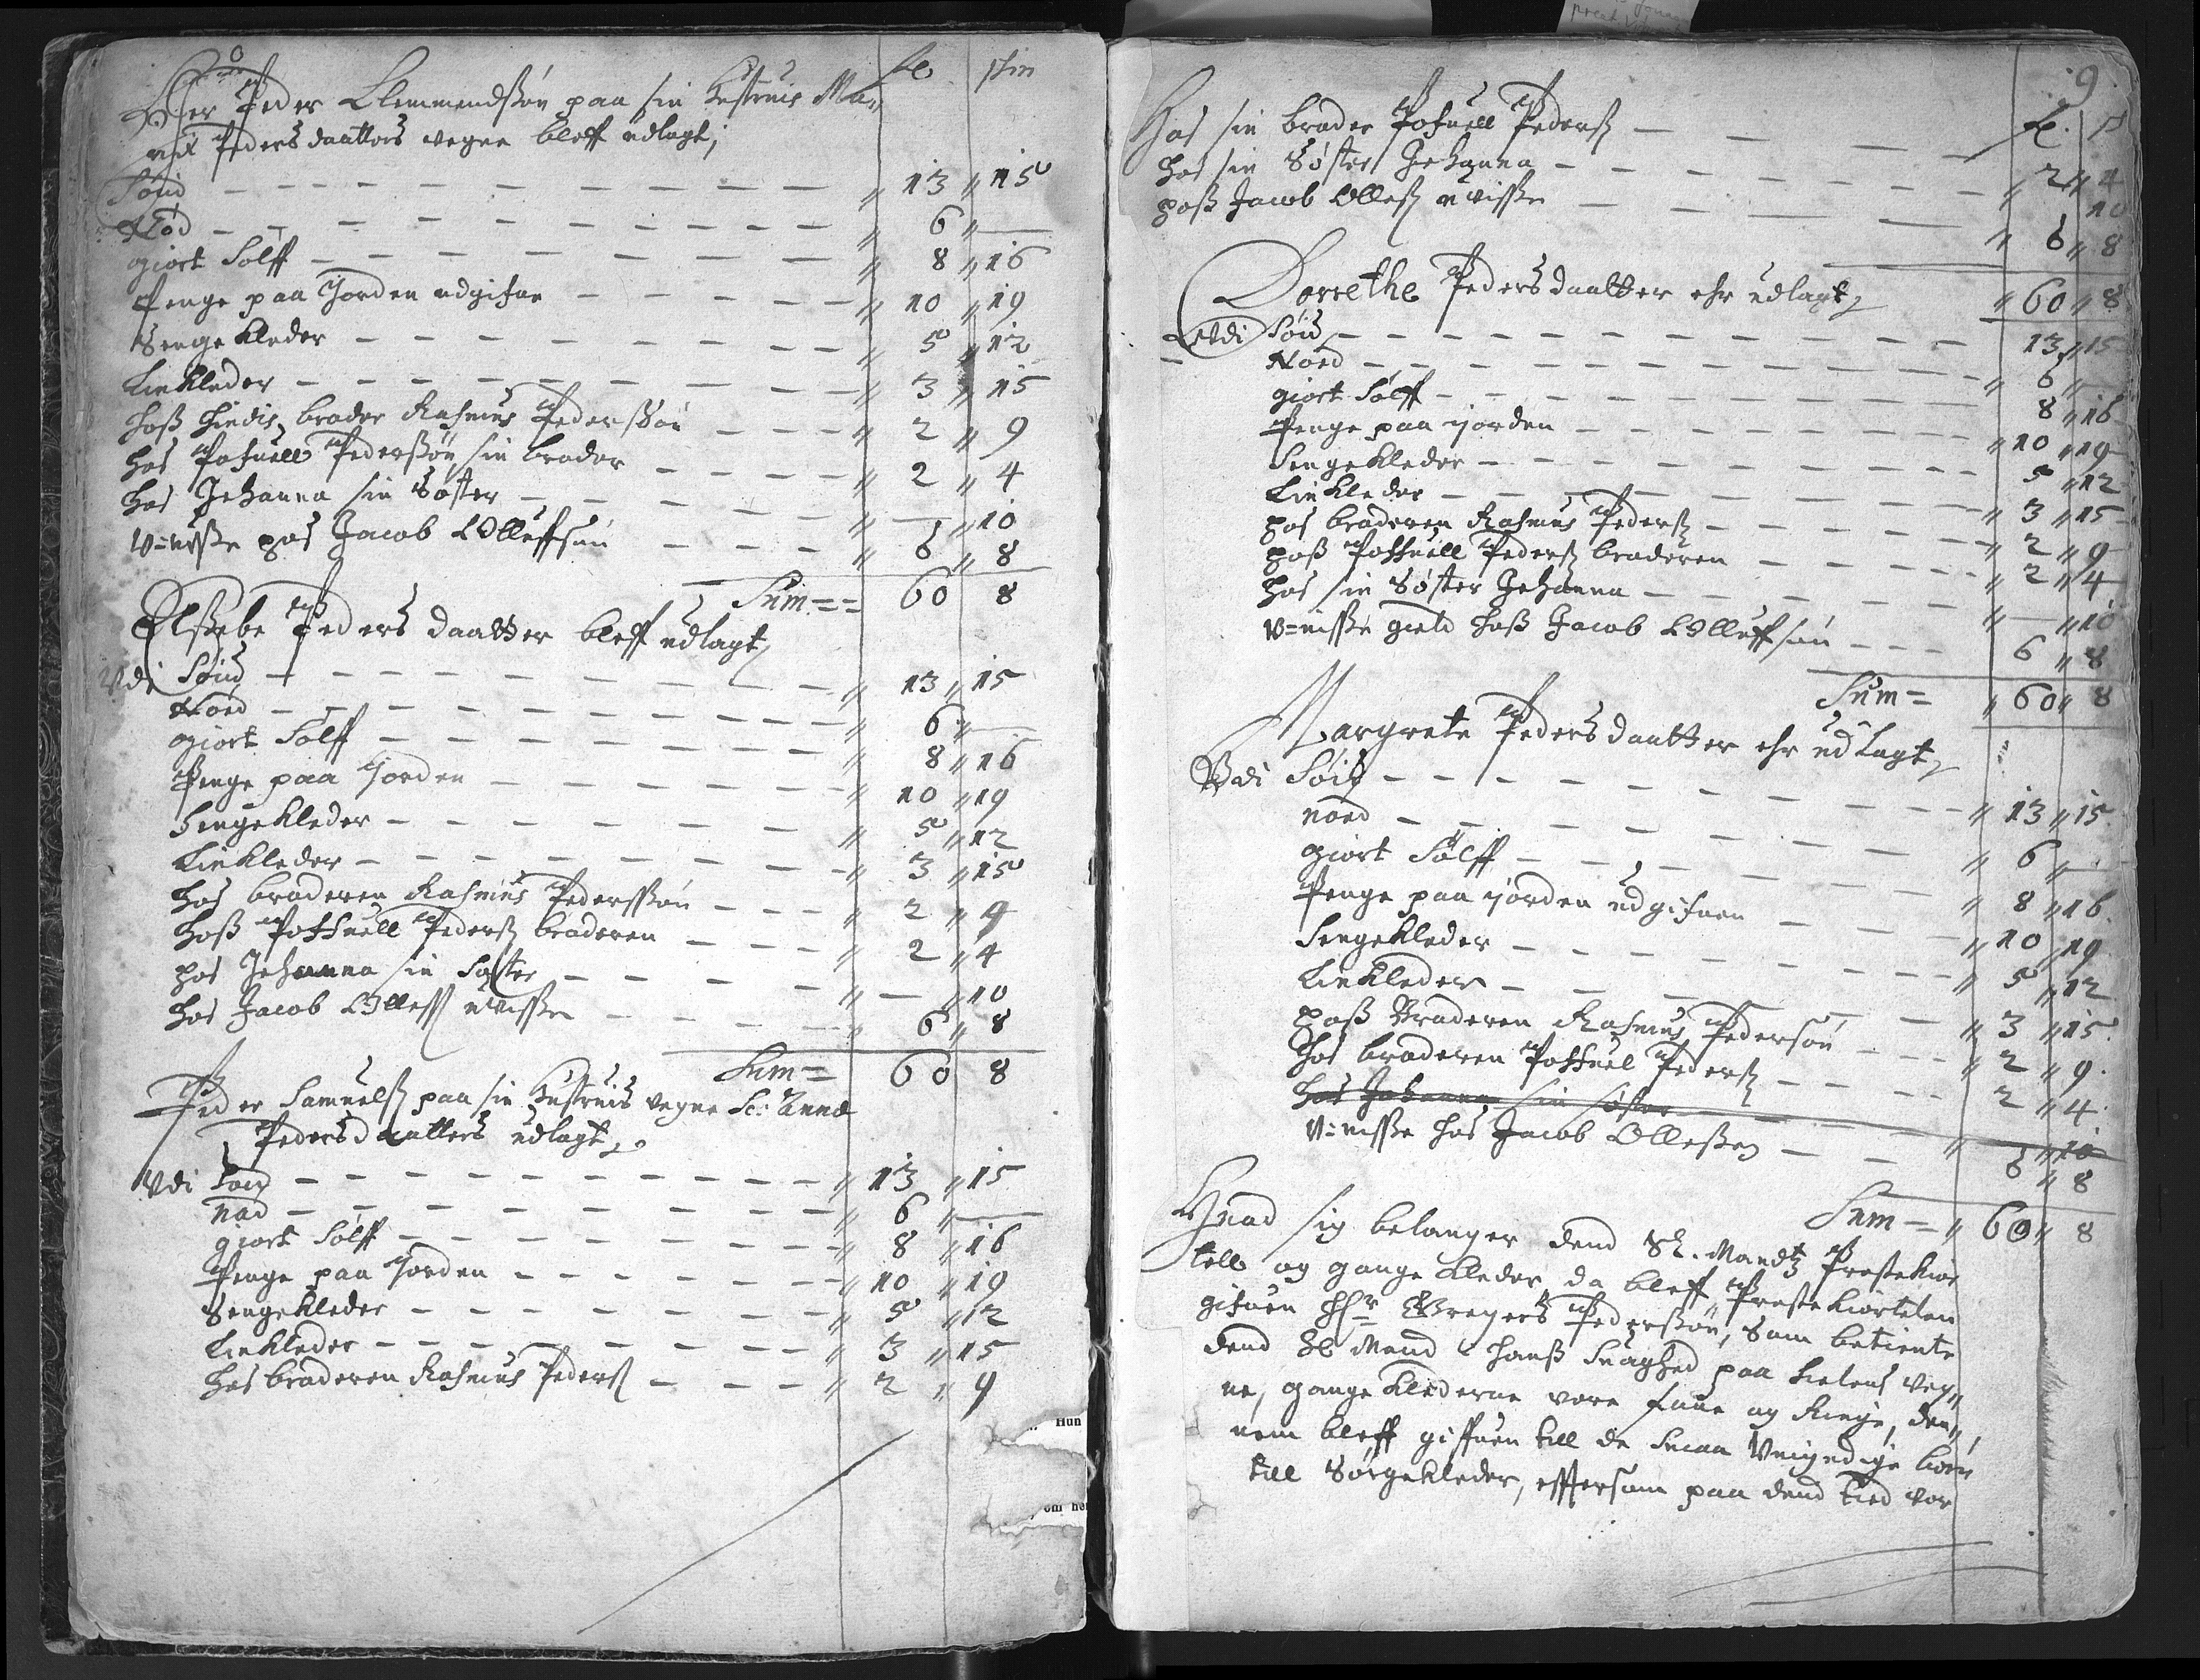 Her Peder Clemmendssøn paa sin Hustruis Ma=
rit Peders daatters vegne bleff udlagt,
fl skin
Søud — „ 13 „ 15
Nód — „ 6 „ —
giort Sølff — „ 8 „ 16
Penge paa Jorden udgifne — „ 10 „ 19
Senge kleder — „ 5 „ 12
Linkleder — „ 3 „ 15
hoss hindis broder Rasmus Pederssøn — „ 2 „ 9
hos Pofuell Pederssøn sin broder — „ 2 „ 4
hos Johanna sin Søster — „ — „ 10
V=uisse hos Jacob Olluffsøn — „ 6 „ 8
Sum = = 60 8
Elssebe Peders daatter bleff udlagt,
Vdi Søud — „ 13 „ 15
Noed — „ 6 „ —
giort Sølff — „ 8 „ 16
Penge paa Jorden — „ 10 „ 19
Sengekleder — „ 5 „ 12
Linkleder — „ 3 „ 15
hos broderen Rasmus Pederssøn — „ 2 „ 9
hoss Poffuell Pederss broderen — „ 2 „ 4
hos Johanna sin Søster — „ — „ 10
hos Jacob Olless uvisse — „ 6 „ 8
Sum = 60 8
Peder Samuelss paa sin Hustruis vegne Sc: Anna
Pedersdaatters udlagt,
Vdi Søud — „ 13 „ 15
nød — „ 6 „ —
giort Sølff — „ 8 „ 16
Penge paa Jorden — „ 10 „ 19
Sengekleder — „ 5 „ 12
Linkleder — „ 3 „ 15
hos broderen Rasmus Pederss — „ 2 „ 9
Hun
om he
9
fl. s
Hos sin broder Pofuell Pederss — „ 2 „ 4
hos sin Søster Johanna — 10
hoss Jacob Olless uvisse — „ 6 „ 8
„ 60 „ 8
Dorrethe Pedersdaatter ehr udlagt,
Vdi Søud — 13 „ 15
Noed — „ 6 „ —
giort Sølff — 8 „ 16
Penge paa jorden — „ 10 „ 19
Sengekleder — 5 „ 12
Linkleder — „ 3 „ 15
hos broderen Rasmus Pederss — „ 2 „ 9
hoss Poffuell Pederss broderen — „ 2 „ 4
hos sin Søster Johanna — „ — „ 10
V=uisse gield hoss Jacob Olluffsøn — 6 „ 8
Sum = „ 60 „ 8
Margrete Pedersdaatter ehr udlagt,
Vdi Søud — „ 13 „ 15
noed — „ 6 „ —
giort Sølff — „ 8 „ 16
Penge paa jorden udgifuen — „ 10 „ 19
Sengekleder — „ 5 „ 12
Linkleder — „ 3 „ 15
hoss Broderen Rasmus Pedersøn — „ 2 „ 9
hos broderen Poffuel Pederss — 2 „ 4
hos Johanna sin søster — „ „ 10
V=uisse hos Jacob Ollessen — 6 „ 8
Sum = „ 60 „ 8
Huad sig belanger dend Sl. Mandtz Prestekior
tell og gange kleder, da bleff Prestekiortelen
gifuen Hr Gregers Pederssøn, Som betiente
dend Sl Mand i hanss Suaghed paa kietens veg„
ne, gange klederne vore faae og Ringe, den„
nem bleff giffuen till de Smaa Vmyndige børn
till Sørgekleder, effersom paa dend tied vor